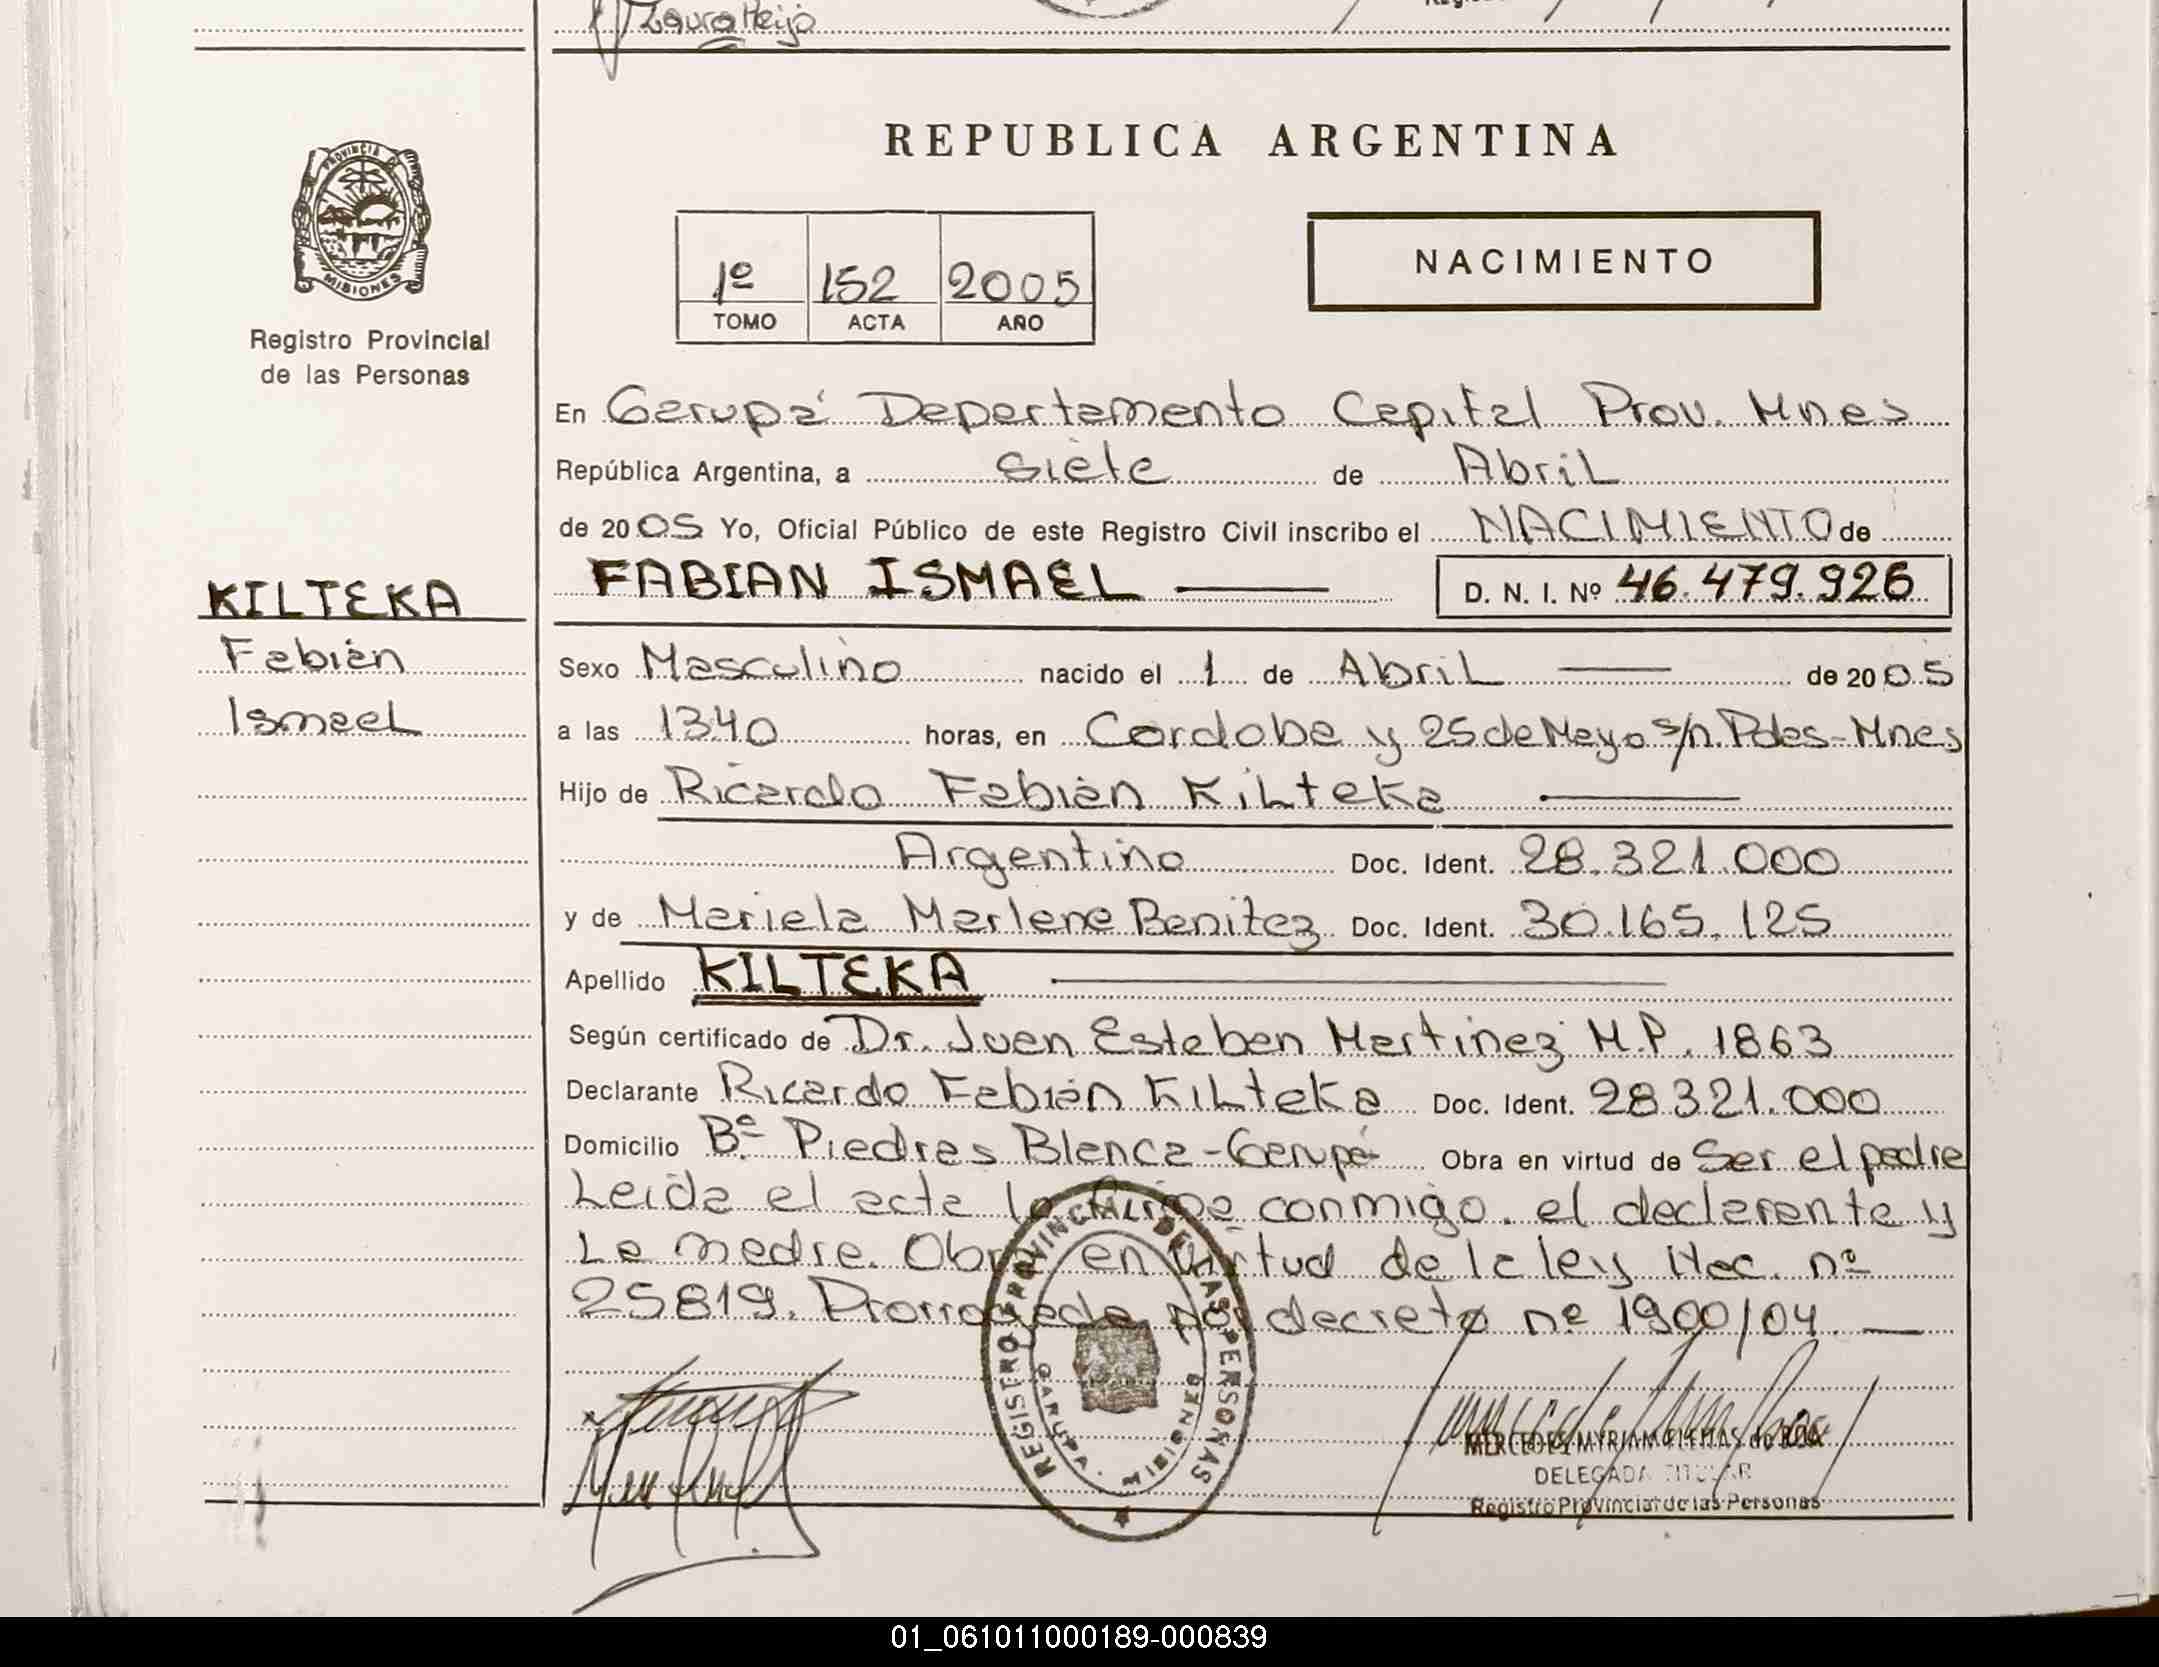 Laura Meijo
REPUBLICA ARGENTINA
PROVINCIA DE
MISIONES
Registro Provincial
de las Personas
1º 152 2005
TOMO ACTA AÑO
NACIMIENTO
En Garupá Departamento Capital Prov. Mnes
República Argentina, a siete de Abril
de 2005 Yo, Oficial Público de este Registro Civil inscribo el NACIMIENTO de
KILTEKA
Fabián
Ismael
FABIAN ISMAEL D. N. I. Nº 46.479.926
Sexo Masculino nacido el 1 de Abril de 2005
a las 13.40 horas, en Cordoba y 25 de Mayo s/n. Pdas-Mnes
Hijo de Ricardo Fabián Kilteka
Argentino Doc. Ident. 28.321.000
y de Mariela Marlene Benitez Doc. Ident. 30.165.125
Apellido KILTEKA
Según certificado de Dr. Juan Esteban Martinez M.P. 1863
Declarante Ricardo Fabián Kilteka Doc. Ident. 28321.000
Domicilio Bº Piedras Blanca-Garupá Obra en virtud de Ser el padre
Leida el acta la firma conmigo. el declarante y
La madre. Obra en virtud de la ley Nac. nº
25819. Prorrogada por decreto nº 1900/04.
REGISTRO PROVINCIAL DE LAS PERSONAS
GARUPA. MISIONES
MERCEDES MYRIAM FLEITAS de
DELEGADA TITULAR
Registro Provincial de las Personas
01_061011000189-000839